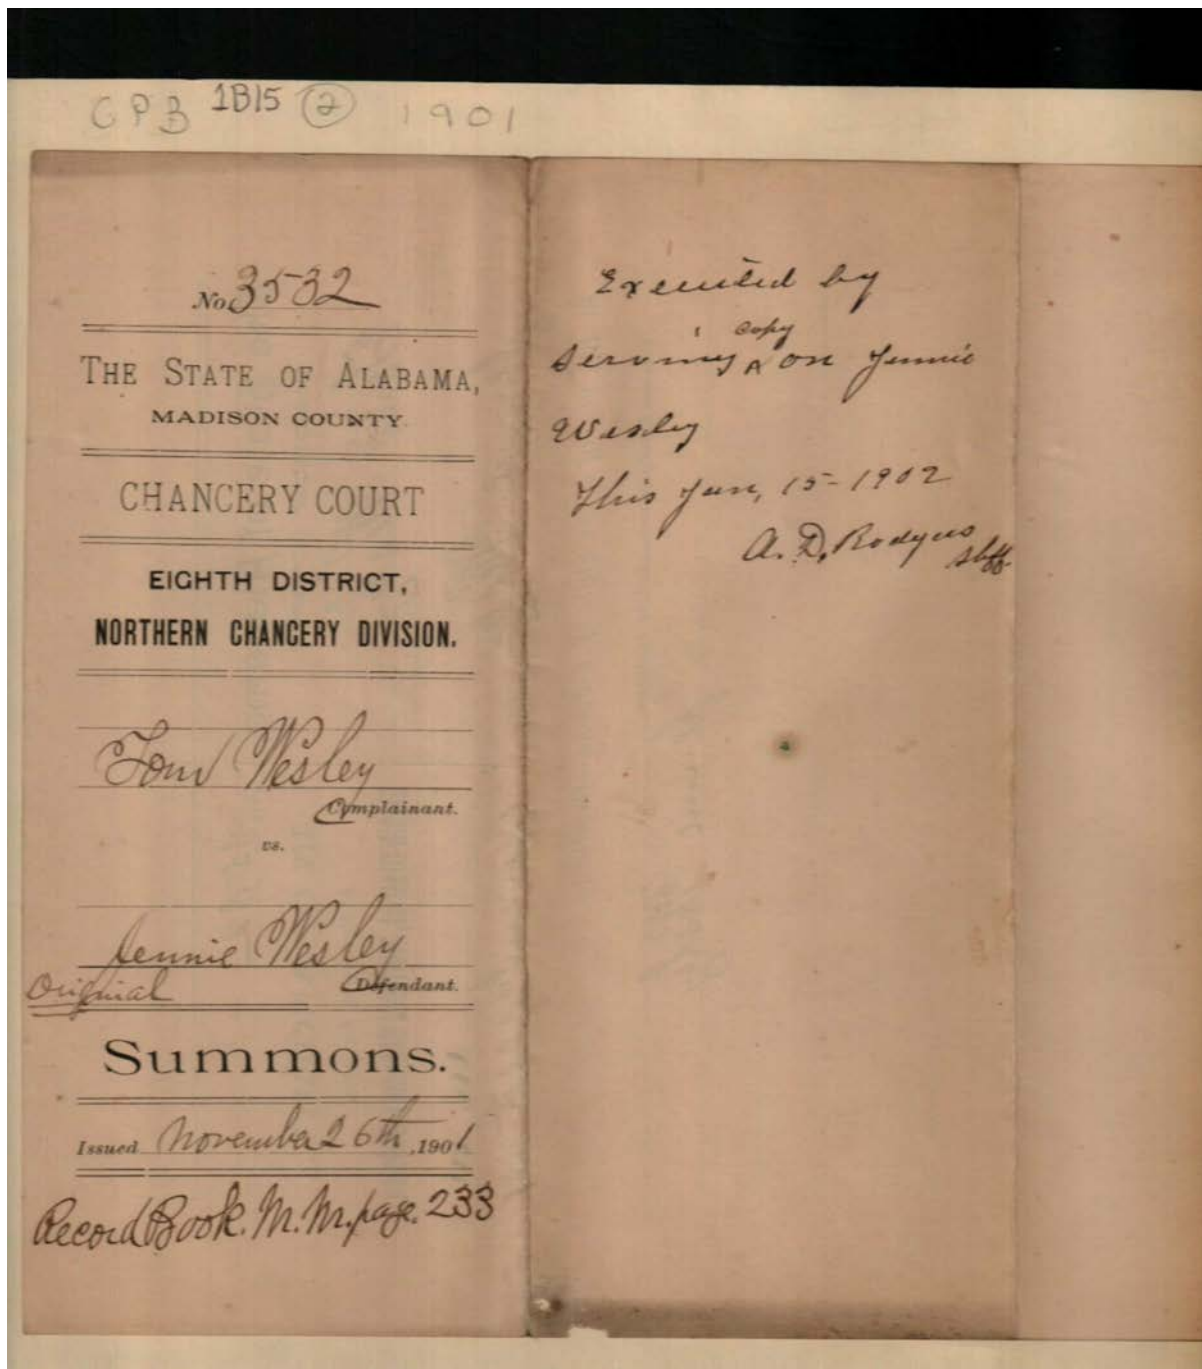 CPB 1B15 2 1901
No. 3532
THE STATE OF ALABAMA,
MADISON COUNTY.
CHANCERY COURT
EIGHTH DISTRICT,
NORTHERN CHANCERY DIVISION.
Tom Wesley
Complainant.
vs.
Jennie Wesley
Original Defendant.
Summons.
Issued November 26th, 1901
Record Book. M. M. page. 233
Executed by
copy
serving ^ on Jennie
Wesley
This Jan, 15-1902
A. D. Rodgers
Shff.